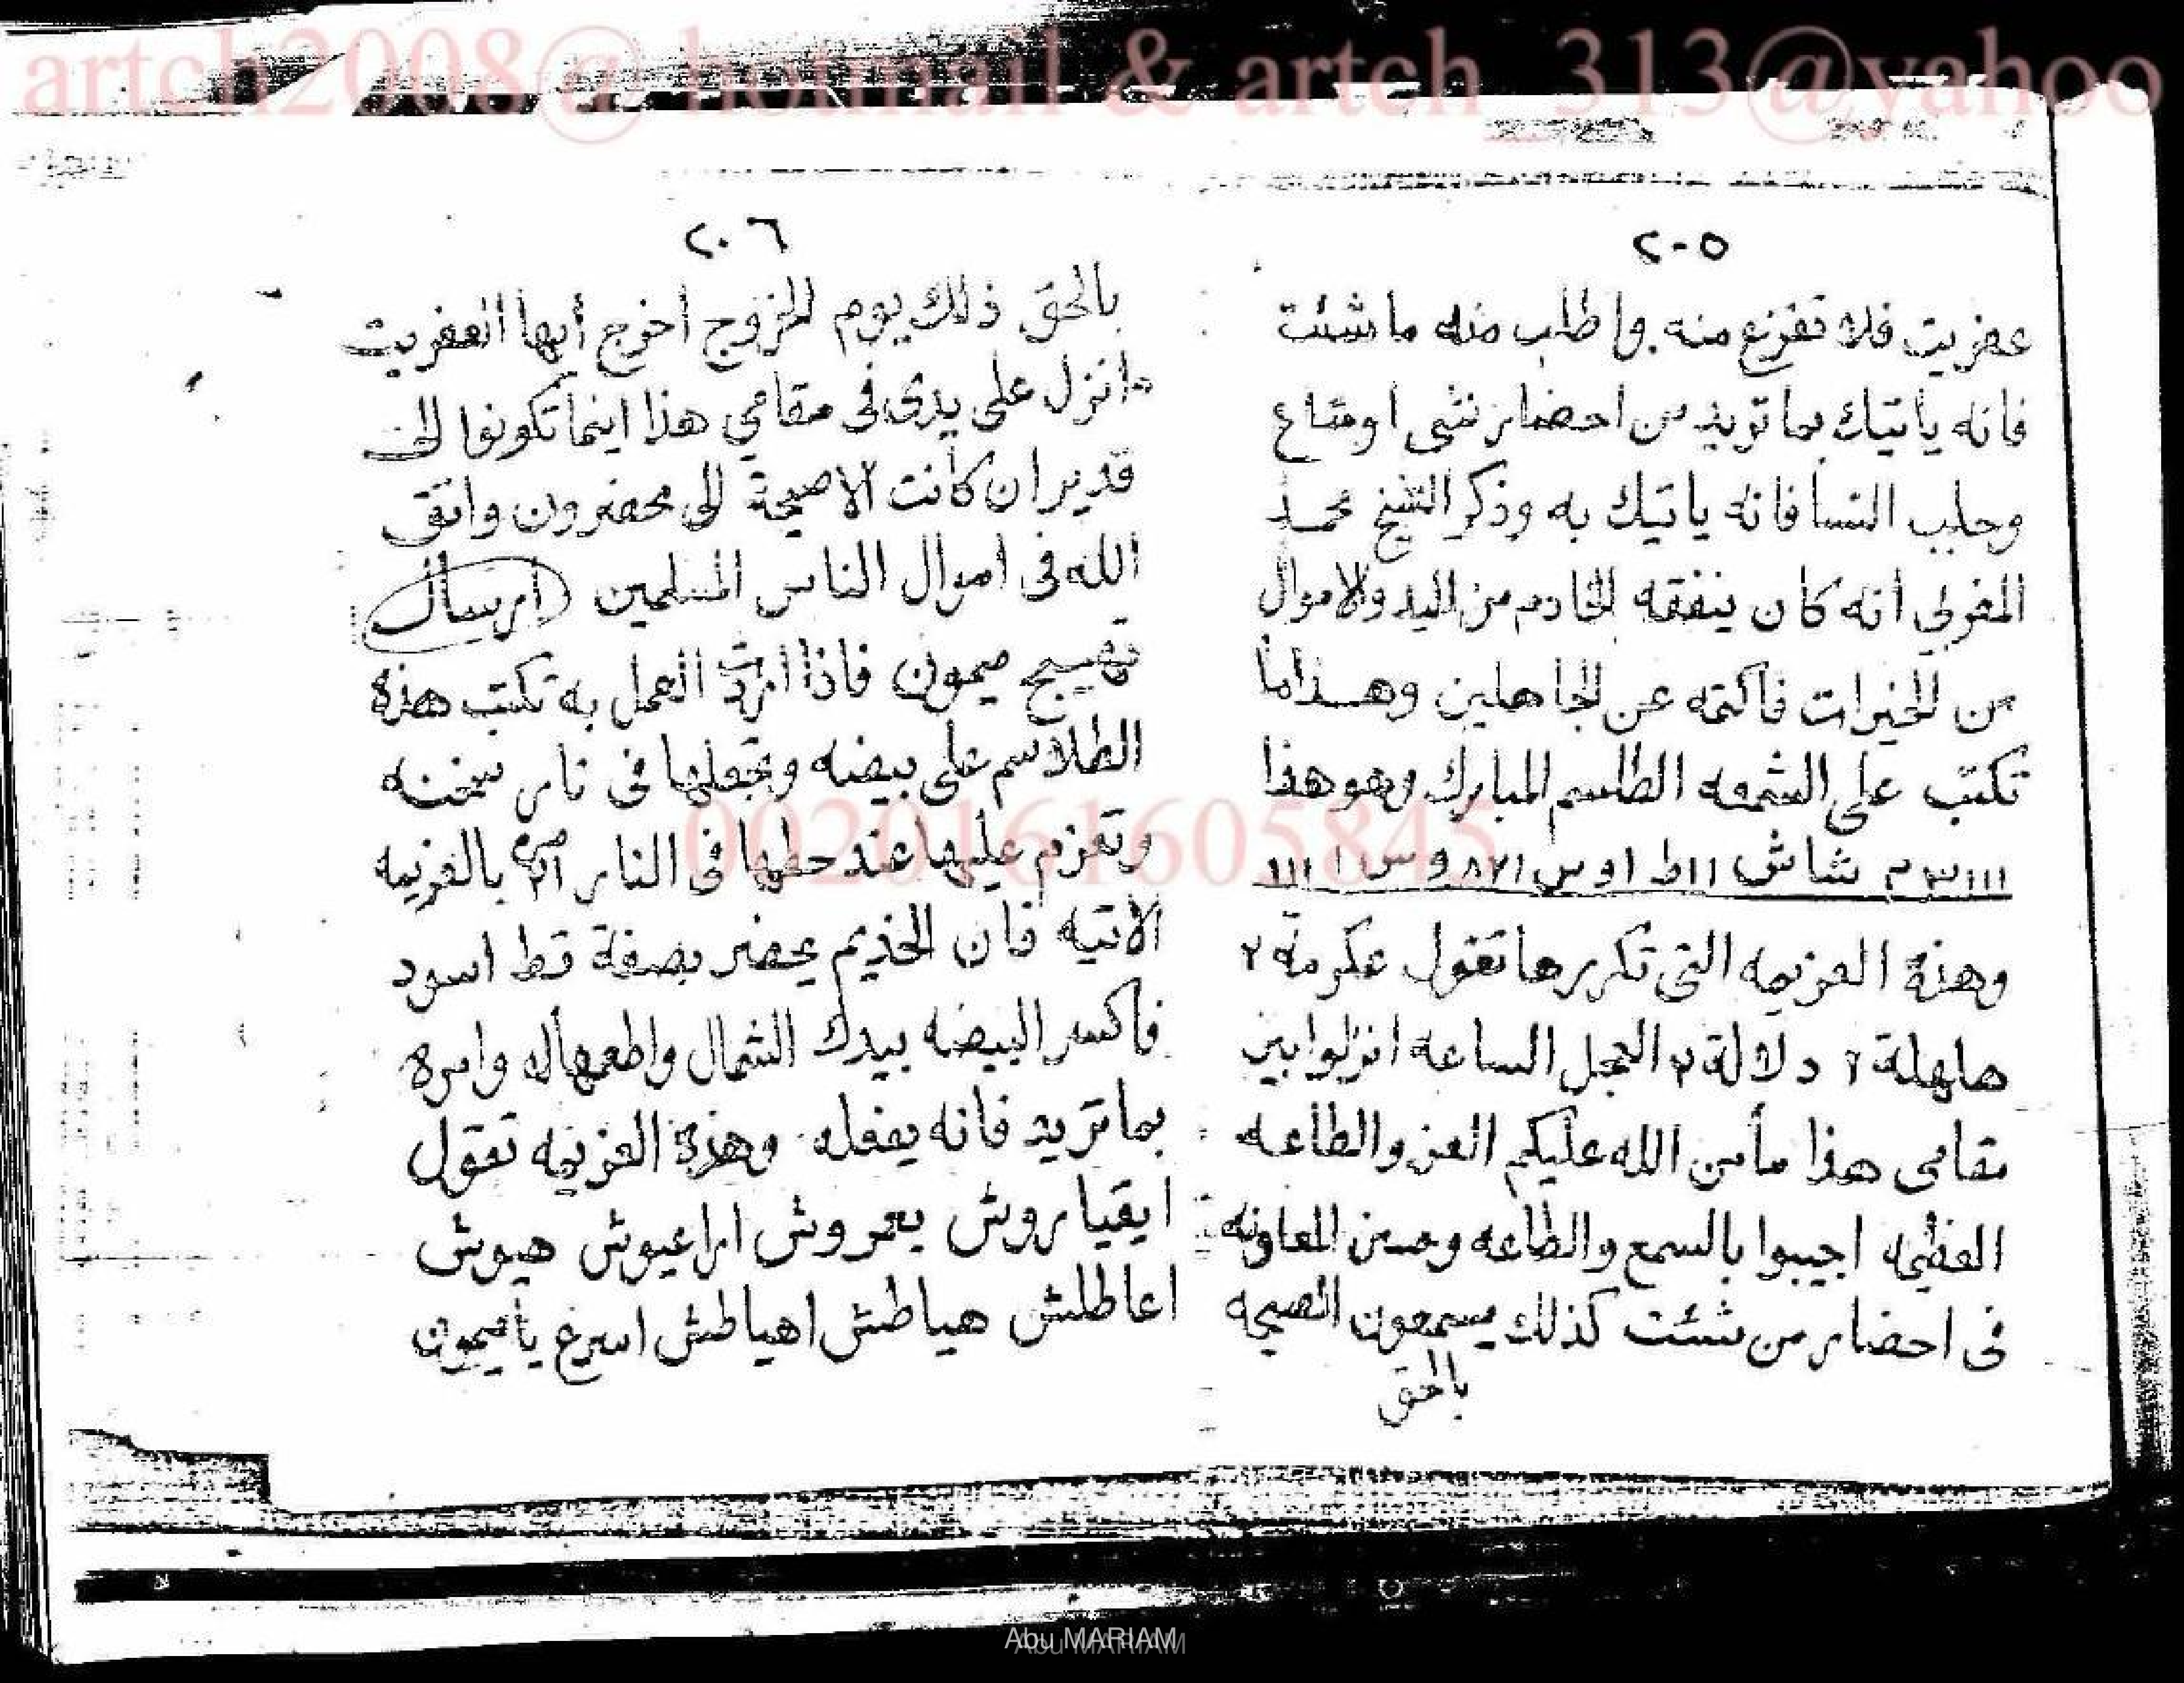 artch2008@ hotmail & artch_313@yahoo
٢٠٥
عفريت فلا تفزع منه واطلب منه ما شئت
فانه ياتيك بما تريد من احضار شي او متاع
وجلب النسا فانه ياتيك به وذكر الشيخ محمد
المغولي انه كان ينفقه الخادم من اليد والاموال
من الخيرات فاكتمه عن الجاهلين وهذا ما
تكتب على الشمعه الطلسم المبارك وهو هذا
شاش ااط اوس
وهذه العزيمه التي تكررها تقول عكرمة ٢
هلهلة ٢ دلالة ٢ العجل الساعه انزلوا بين
مقامى هذا مأمن الله عليكم العز والطاعه
العظيمه اجيبوا بالسمع والطاعه وحسن المعاونه
فى احضار من شئت كذلك يسمعون الصيحه
بالحق
٢٠٦
بالحق ذلك يوم الخروج اخرج أيها العفريت
وانزل على يدى فى مقامي هذا اينما تكونوا الى
قدير ان كانت الا صيحة الى محضرون واتق
الله فى اموال الناس المسلمين ارسال
تهييج ميمون فاذا اردت العمل به تكتب هذه
الطلاسم على بيضه وتجعلها فى نار سخنه
وتعزم عليها عند حطها فى النار بالعزيمه
الاتيه فان الخديم يحضر بصفة قط اسود
فاكسر البيضه بيدك الشمال واطعمها له وامره
بما تريد فانه يفعله وهذه العزيمه تقول
ايقياروش يعمروش اراعيوش هيوش
اعاطلش هياطش اهياطش اسرع يا ميمون
00201161605845
Abu MARIAM